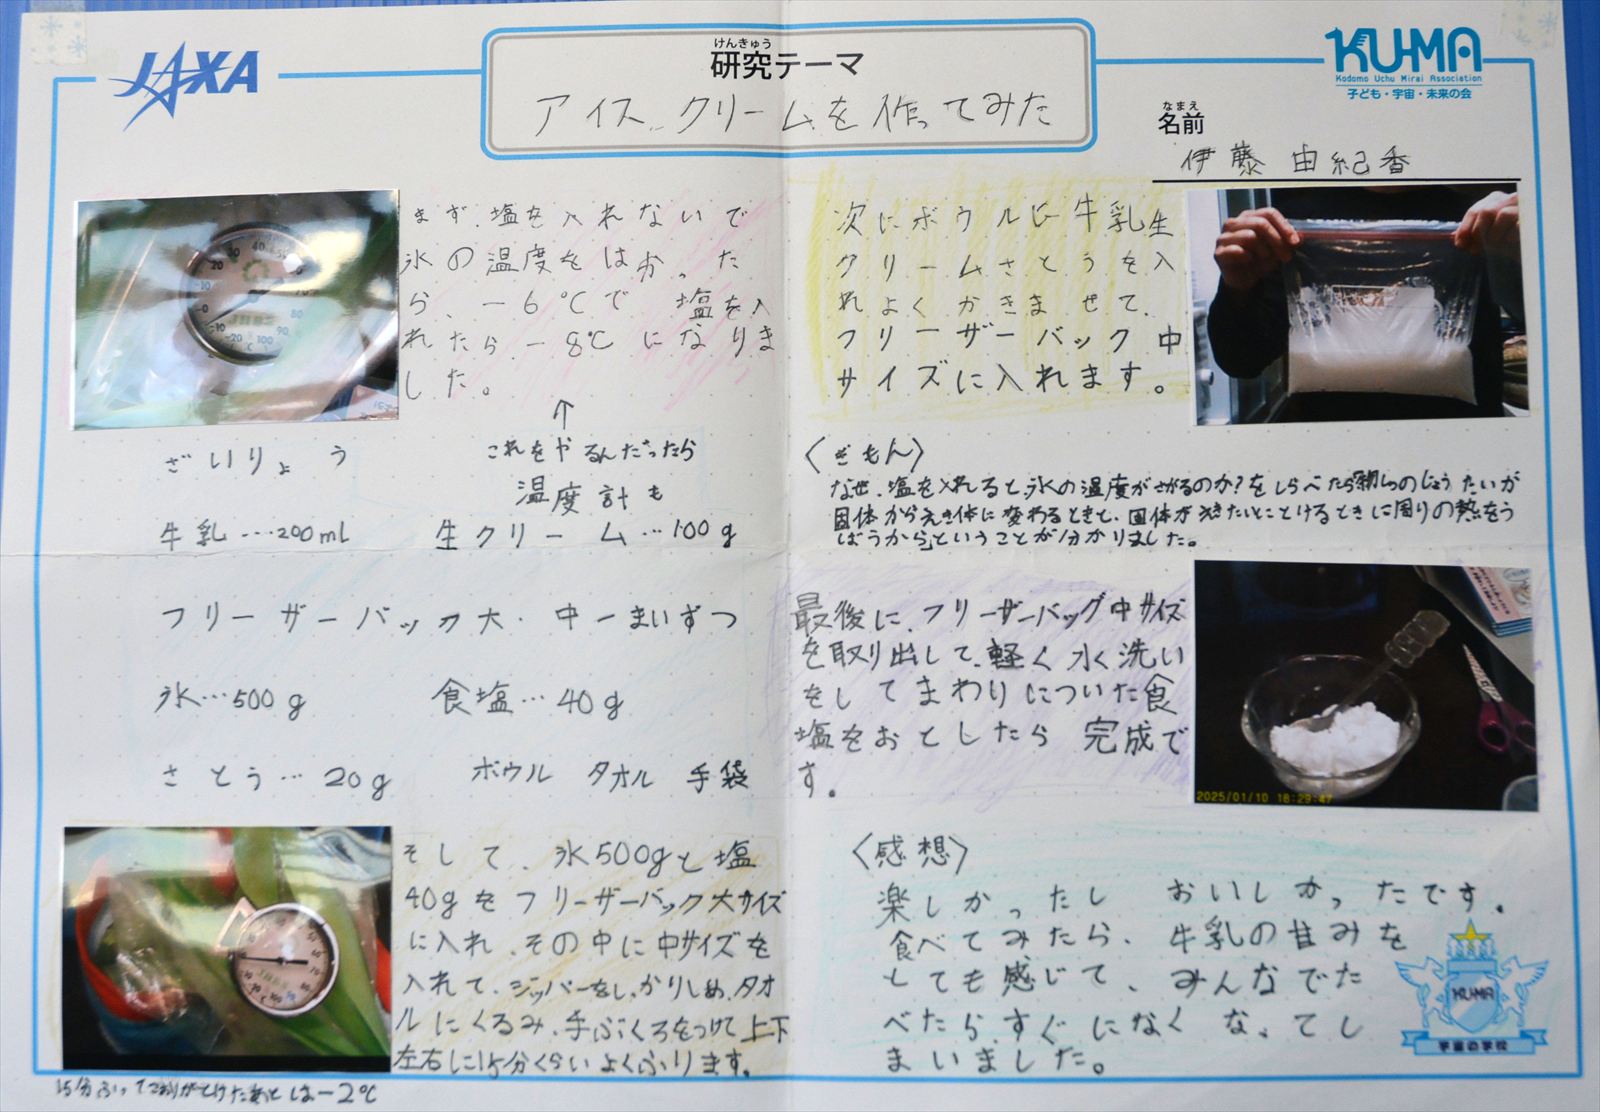 JAXA
けんきゅう
研究テーマ
アイスクリームを作ってみた
KU-MA
Kodomo Uchu Mirai Association
子ども・宇宙・未来の会
なまえ
名前
伊藤 由紀香
まず、塩を入れないで
氷の温度をはかった
ら、-6℃で 塩を入
れたら-8℃になりま
した。
↑
これをやるんだったら
温度計も
ざいりょう
牛乳…200ml 生クリーム…100g
フリーザーバック大・中一まいずつ
氷…500g 食塩…40g
さとう…20g ボウル タオル 手袋
そして、氷500gと塩
40gをフリーザーバック大サイズ
に入れ、その中に中サイズを
入れて、ジッパーをしっかりしめ、タオ
ルにくるみ、手ぶくろをつけて上下
左右に15分くらいよくふります。
15分ふって氷がとけたあとは-2℃
次にボウルに牛乳生
クリームさとうを入
れよくかきませて、
フリーザーバック中
サイズに入れます。
〈ぎもん〉
なぜ、塩を入れると、氷の温度がさがるのか?をしらべたら「物しつのじょうたいが
固体からえき体に変わるときと、固体がえきたいにとけるときに周りの熱をう
ばうから」ということが分かりました。
最後に、フリーザーバッグ中サイズ
を取り出して、軽く水洗い
をしてまわりについた食
塩をおとしたら 完成で
す。
2025/01/10 16:29:47
〈感想〉
楽しかったし おいしかったです。
食べてみたら、牛乳の甘みを
とても感じて、みんなでた
べたらすぐになくなってし
まいました。
KU-MA
宇宙の学校